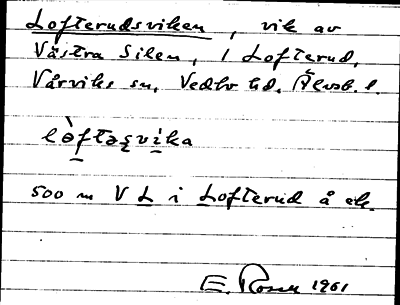 Lofterudsviken, vik av
Västra Silen, i Lofterud,
Vårviks sn, Vedbo hd, Älvsb. l.
lòftəsvika
500 m V L i Lofterud å ek.
E. Rosen 1961